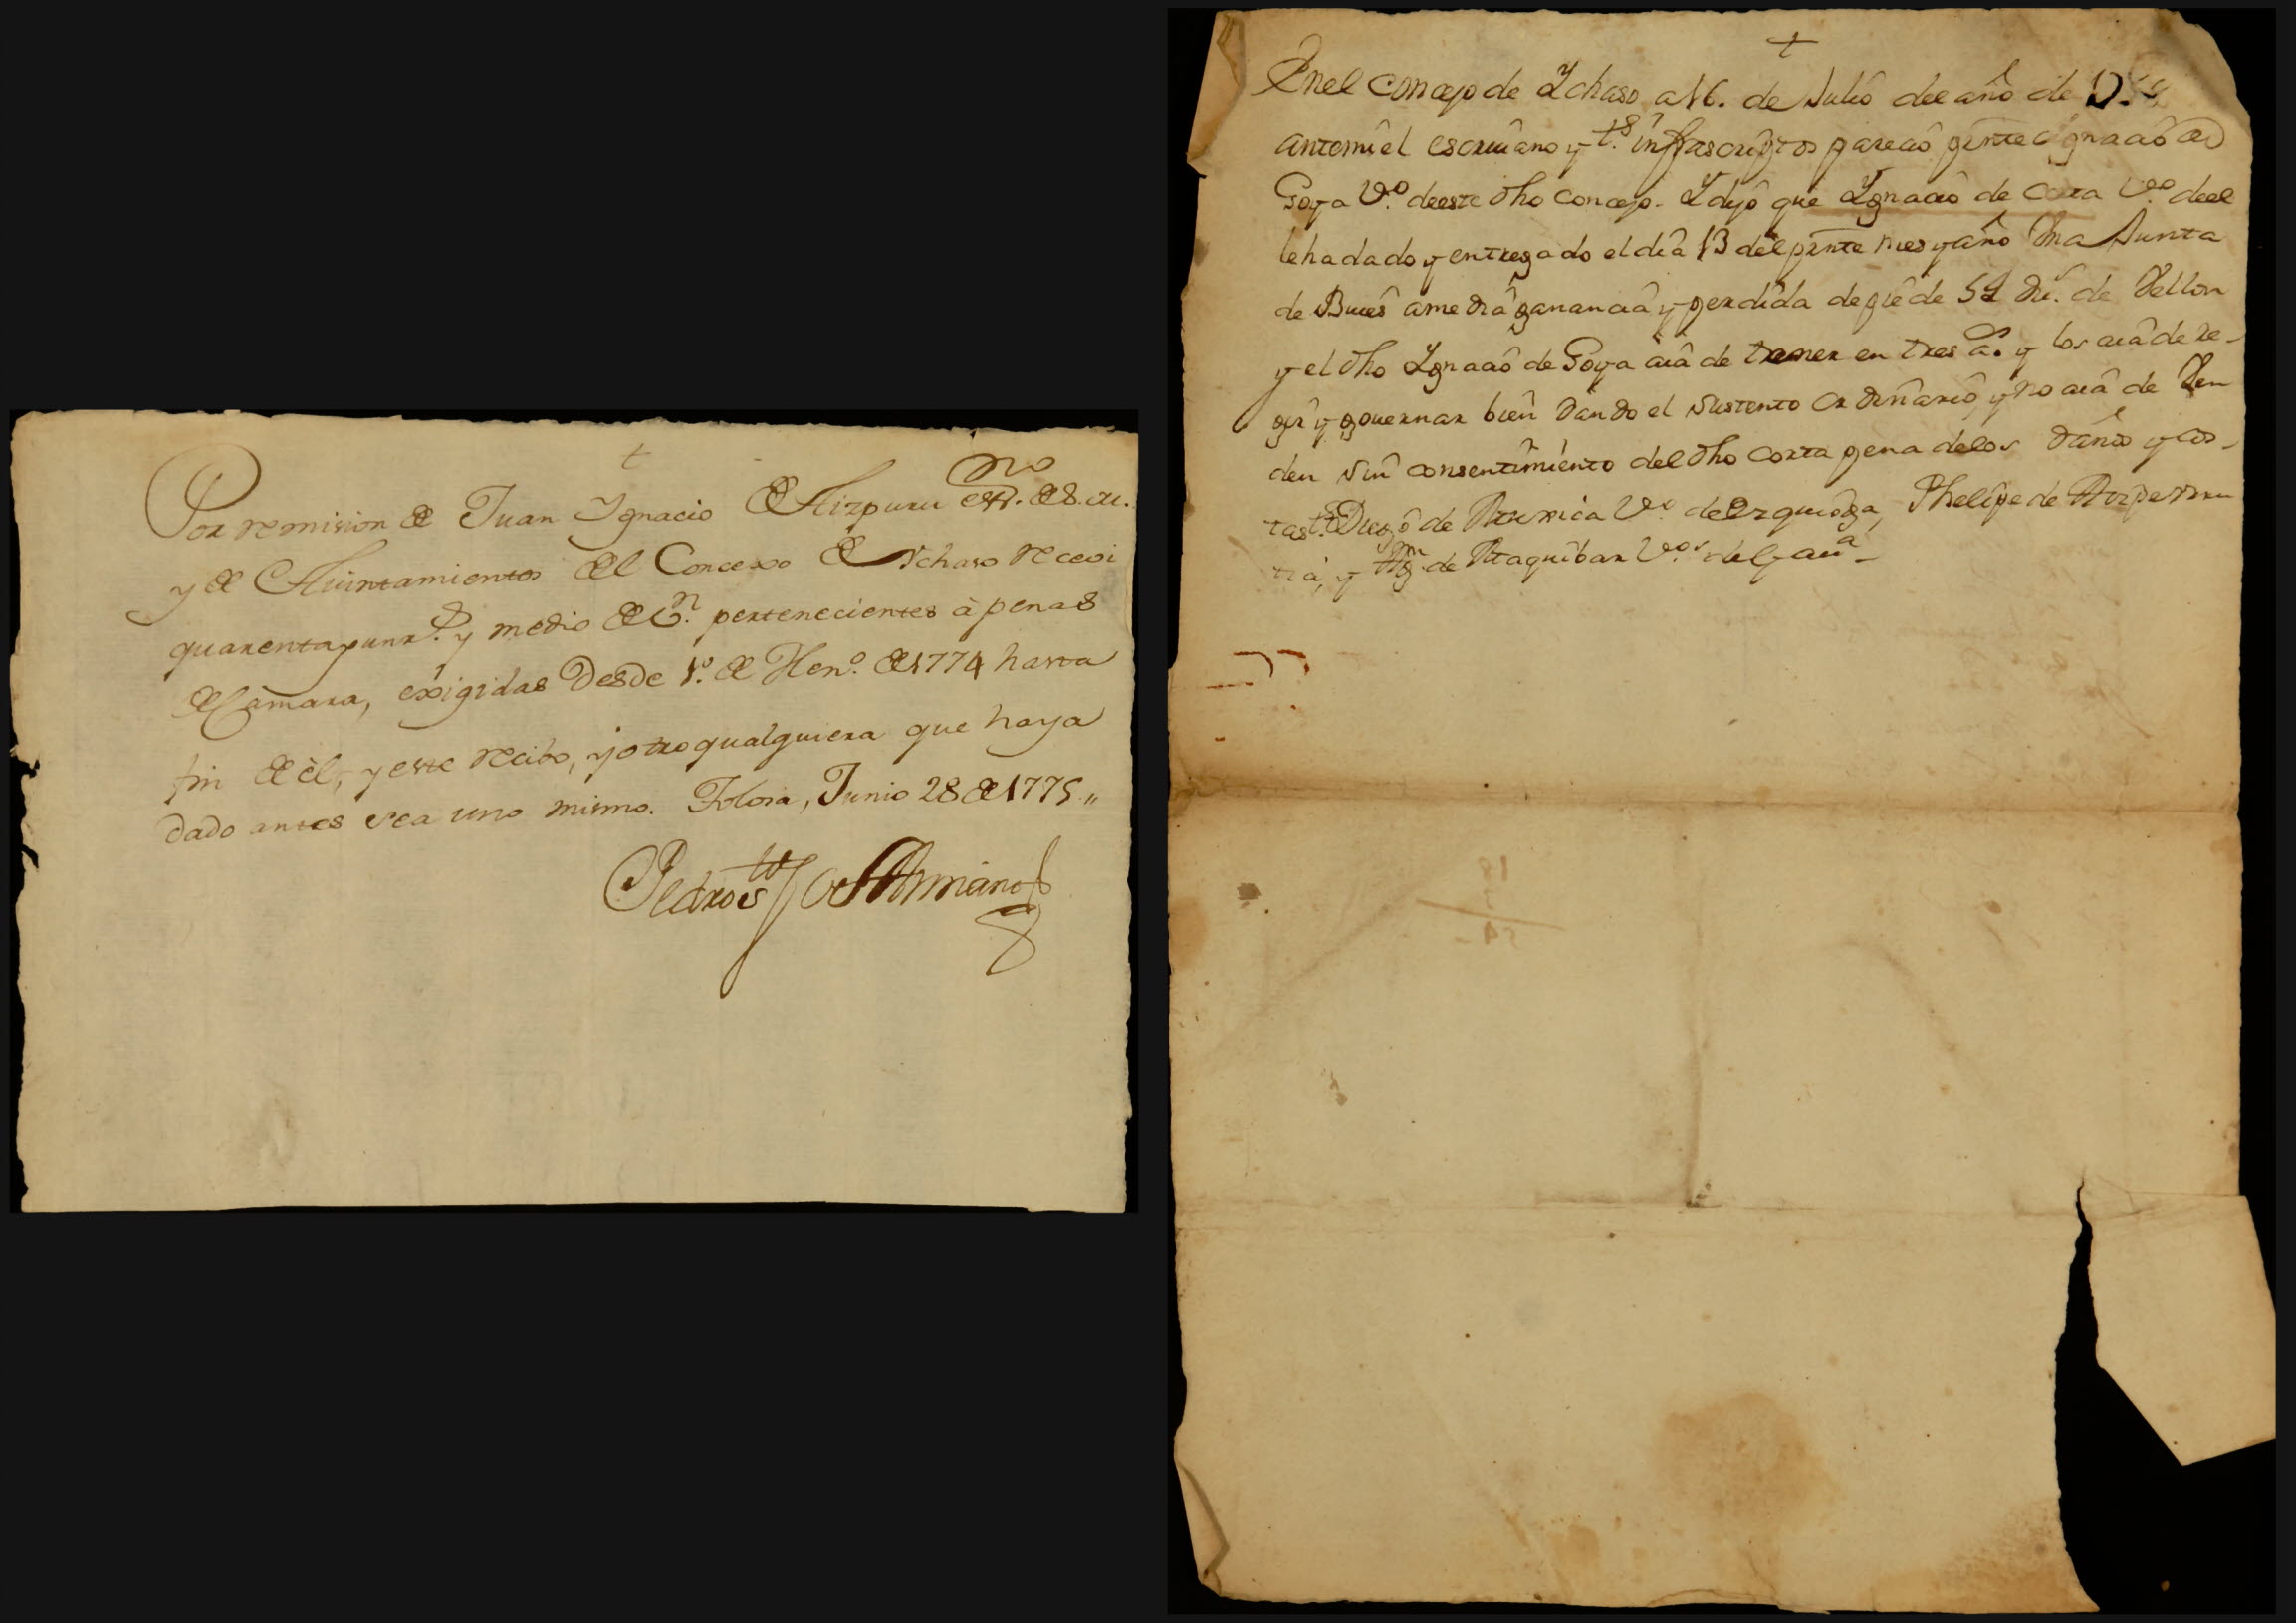 t
Por remision de Juan Ygnacio de Aizpuru essno. de S. M.
y de Aiuntamientos del Concexo de Ichaso recevi
quarenta y un rs. y medio de vn. pertenecientes à penas
de Camara, exigidas desde 1.º de Hen.º de 1774 hasta
fin de èl, y este recibo, y otro qualquiera que haya
dado antes sea uno mismo. Tolosa, Junio 28 de 1775.,,
Pedro
t
Enel concejo de Ychaso a 16. de Julio del año de
antemi el escriuano y ts. infrascriptos parecio pressnte Ignacio de
Goya Vº. deeste dho concejo. Y dijo que Ygnacio de Corta Vº. deel
le ha dado y entregado el dia 13 del presste mes y año Vna Junta
de Bueis a media ganancia y perdida de pie de 52 Du.s de Vellon
y el dho Ygnacio de Goya aia de traner en tres as. y los aia de re-
gir y gouernar bien dando el sustento ordinario, y no aia de Ven
den sin consentimiento del dho corta pena delos daños y cos-
tas ts. Diego de Vº de Ezquioga, Phelipe de
tia, y de Ataquibar Vºs de Gauia
18
3
54